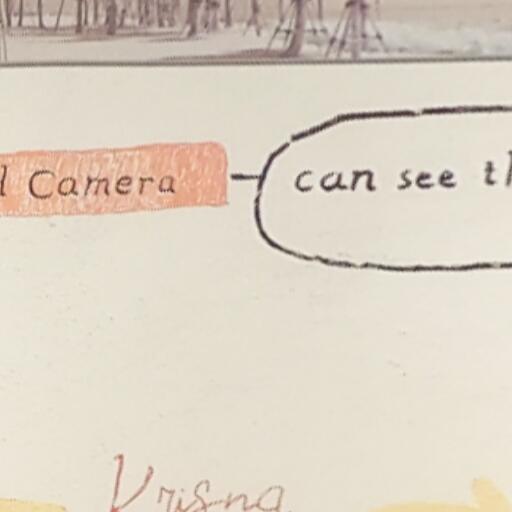 l Camera
can see th
Krisna